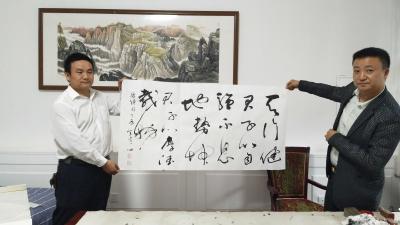 天行健
君子以自
强不息
地势坤
君子以厚德
载物